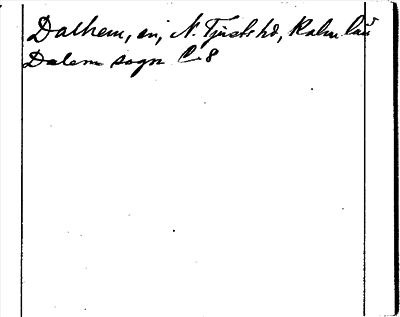 Dalhem, sn, N. Tjusts hd, Kalm. län
Dalem sogn C 8